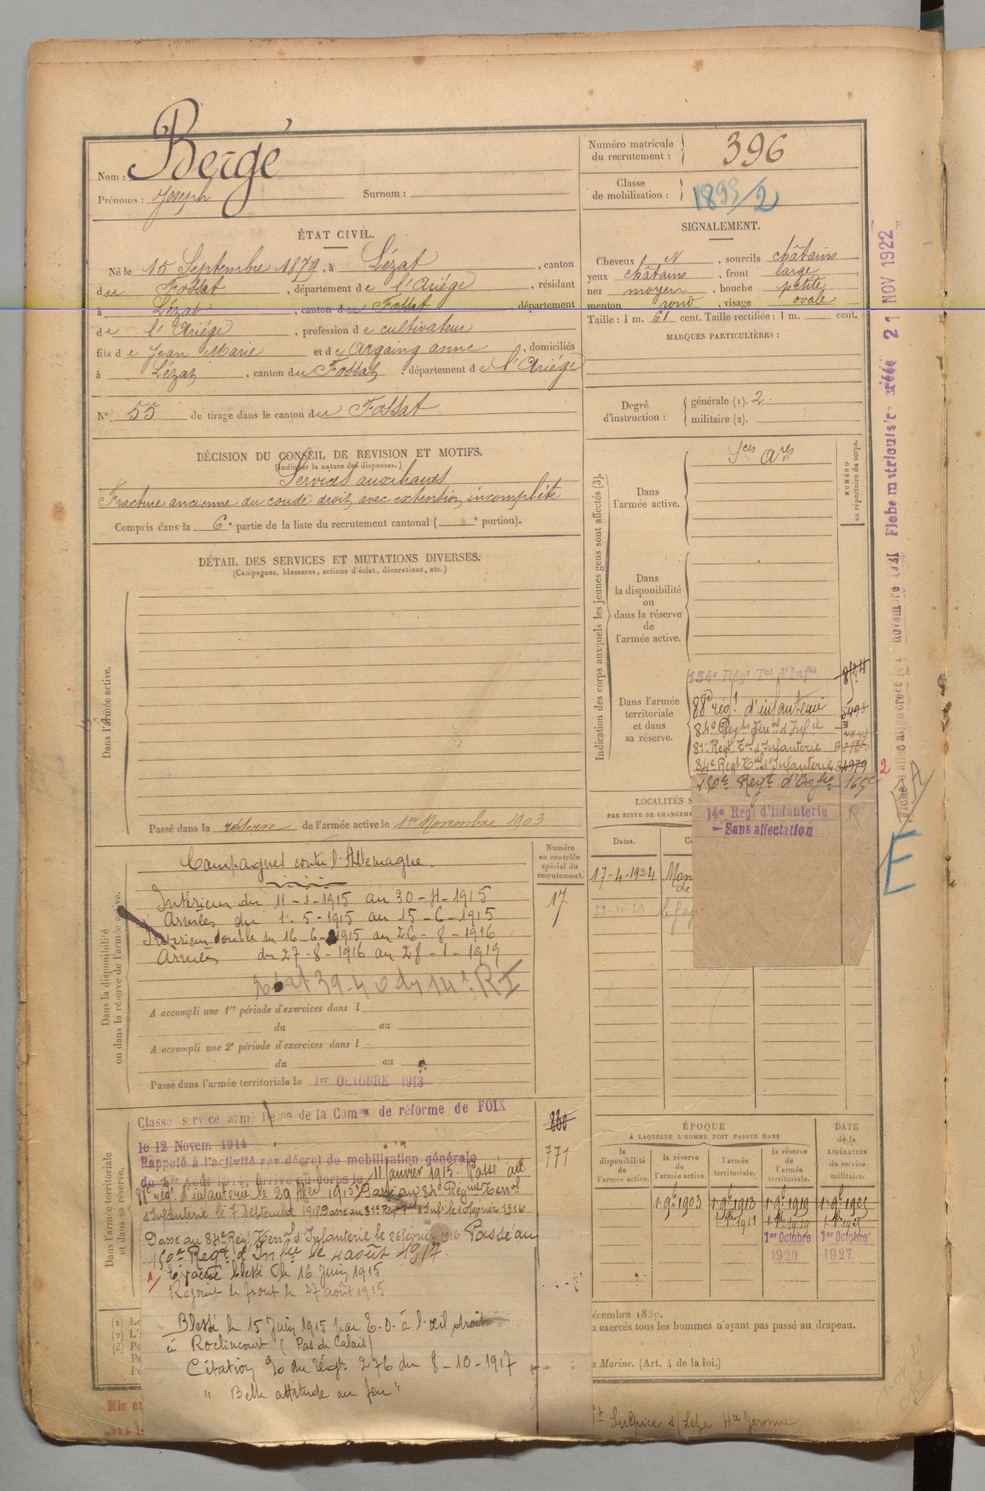 Nom : Bergé
Prénoms : Joseph Surnom :
Numéro matricule du recrutement : 396
Classe de mobilisation : 1899/2
ÉTAT CIVIL.
Né le 15 Septembre 1879, à Lézat, canton
du Fossat, département de l'Ariège, résidant
à Lézat, canton du Fossat, département
de l'Ariège, profession de cultivateur
fils de Jean Marie et de Argaing anne, domiciliés
à Lézat, canton du Fossat, département de l'Ariége
N° 55 de tirage dans le canton du Fossat
SIGNALEMENT.
Cheveux N, sourcils châtains
yeux châtains, front large
nez moyen, bouche petite
menton rond, visage ovale
Taille : 1 m. 61 cent. Taille rectifiée : 1 m. cent.
MARQUES PARTICULIÈRES :
Degré d'instruction : générale (1). 2
militaire (2).
DÉCISION DU CONSEIL DE REVISION ET MOTIFS.
(Indiquer la nature des dispenses.)
Services auxiliaires
Fracture ancienne du coude droit avec extension incomplète
Compris dans la 6e partie de la liste du recrutement cantonal ( portion).
DÉTAIL DES SERVICES ET MUTATIONS DIVERSES.
(Campagnes, blessures, actions d'éclat, décorations, etc.)
Dans l'armée active.
Passé dans la réserve de l'armée active le 1er Novembre 1903
Indication des corps auxquels les jeunes gens sont affectés (3).
NUMÉRO au répertoire du corps.
Dans l'armée active.
Sces ares
Dans la disponibilité ou dans la réserve de l'armée active.
Dans l'armée territoriale et dans sa réserve.
134e Régt Tal d'Infie
88e rég.t d'infanterie
84e Regt Terr.al d'Infie
81e Regt Tal d'Infanterie
84e Regt Tal d'Infanterie
150e Regt d'Infie
14e Regt d'Infanterie
— Sans affectation
Fiche matricule créée 21 NOV 1922
LOCALITÉS S
PAR SUITE DE CHANGEME
Dates.
17-4-1924
Dans la disponibilité ou dans la réserve de l'armée active.
Numéro au contrôle spécial du recrutement.
17
Campagnes contre l'Allemagne.
Intérieur du 11-1-1915 au 30-4-1915
Armées du 1-5-1915 au 15-6-1915
Intérieur double du 16-6-1915 au 26-8-1916
Armées du 27-8-1916 au 28-1-1919
A accompli une 1re période d'exercices dans l
du au
A accompli une 2e période d'exercices dans l
du au
Passé dans l'armée territoriale le 1er OCTOBRE 1913
Dans l'armée territoriale et dans sa réserve.
771
Classé service armé Don de la Comon de réforme de FOIX
le 12 Novem 1914
Rappelé à l'activité par décret de mobilisation générale
du 1er Août 1914. Arrivé au corps le 11 janvier 1915. Passé au
d'Infanterie le 7 Septembre 1915
Passé au 84e Reg Terr.al d'Infanterie le 26 février 1916 Passé au
150e Regt d'Infie le 4 août 1917.
Evacué blessé le 16 Juin 1915
Rejoint le front le 27 août 1915
Blessé le 15 Juin 1915 par E.O. à l'œil droit
à Roclincourt (Pas de Calais)
Citation O. du Régt. 276 du 8-10-1917
" Belle attitude au feu "
ÉPOQUE
À LAQUELLE L'HOMME DOIT PASSER DANS
la disponibilité de l'armée active.
la réserve de l'armée active.
l'armée territoriale.
la réserve de l'armée territoriale.
DATE de la LIBÉRATION du service militaire.
1 9bre 1903
1 9bre 1913
1 9bre 1919
1 9bre 1925
1er Octobre 1920
1er Octobre 1927
écembre 1889.
u exercés tous les hommes n'ayant pas passé au drapeau.
a Marine. (Art. 4 de la loi.)
St Sulpice s/ Lèze Hte Garonne